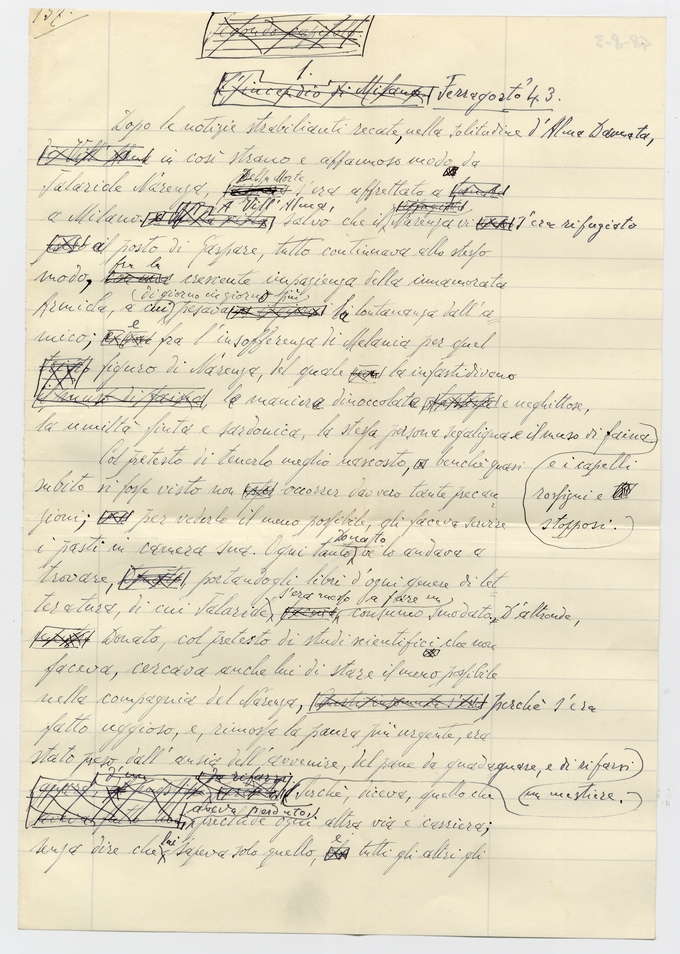 137.
Secondo capitolo
1.
L'incendio di Milano Ferragosto '43.
Dopo le notizie strabilianti recate, nella solitudine d'Alma Damata,
in così strano e affannoso modo da
Falaride Nàrenga, Della Morte s'era affrettato a
a Milano. A Vill'Alma, salvo che il Nàrenga vi s'era rifugiato
al posto di Gaspare, tutto continuava allo stesso
modo, fra la crescente impazienza della innamorata
Armida, a cui di giorno in giorno più pesava la lontananza dall'a=
mico; e fra l'insofferenza di Melania per quel
figuro di Nàrenga, del quale la infastidivano
il muso di faina, la maniera dinoccolata e neghittosa,
la umiltà finta e sardonica, la stessa persona segaligna e il muso di faina
e i capelli
rossigni e
stopposi.
Col pretesto di tenerlo meglio nascosto, benché quasi
subito si fosse visto non occorrer davvero tante precau
zioni; per vederlo il meno possibile, gli faceva servire
i pasti in camera sua. Ogni tanto Donato ve lo andava a
trovare, portandogli libri d'ogni genere di let
teratura, di cui Falaride s'era messo a fare un consumo smodato. D'altronde,
Donato, col pretesto di studi scientifici che non
faceva, cercava anche lui di stare il meno possibile
nella compagnia del Nàrenga, perché s'era
fatto uggioso, e, rimossa la paura più urgente, era
stato preso dall'ansia dell'avvenire, del pane da guadagnare, e di rifarsi
un mestiere.
Perché, diceva, quello che
aveva perduto precludeva ogni altra via e carriera;
senza dire che lui sapeva solo quello, e tutti gli altri gli